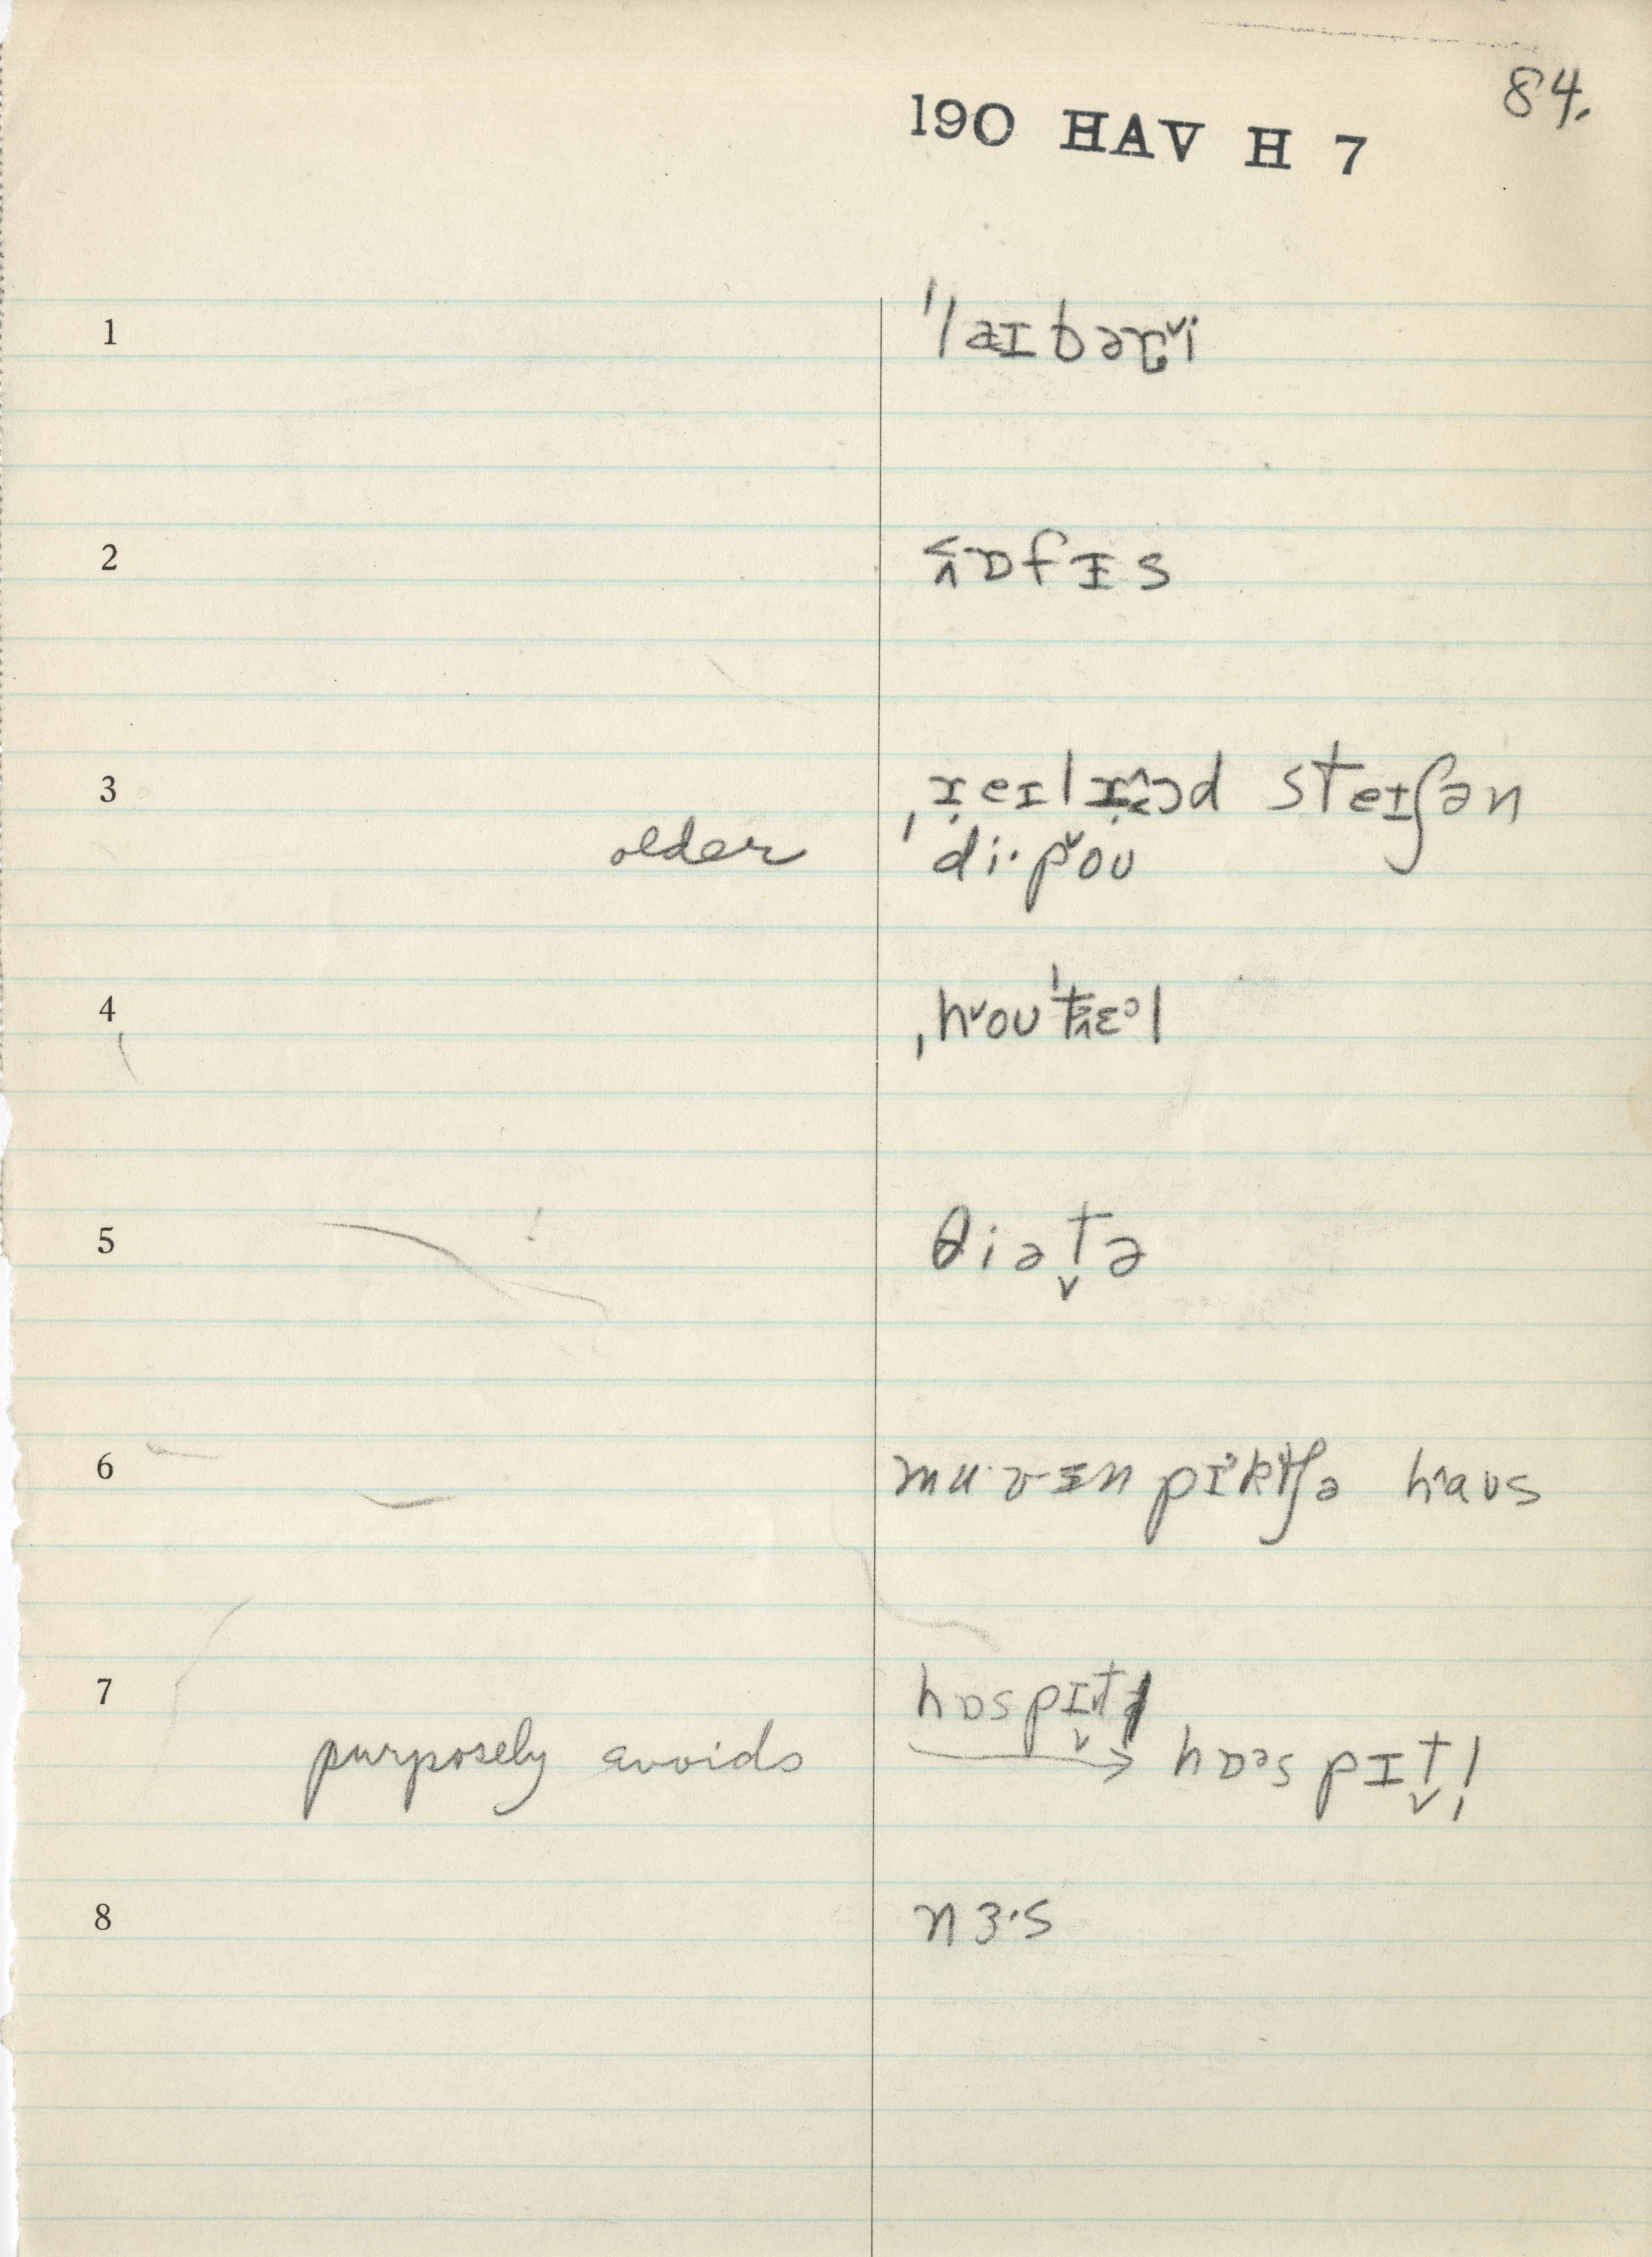 84.
190 HAV H 7
1 ˈlaɪbəɽi
2 ɒfɪs
3 ˌreɪlroəd steɪʃən
older ˈdi·pou
4 ˌhouˈtɛᵊl
5 θiət̬ə
6 mu·vɪn pɪᵊktʃə haus
7 hɒspɪt̬l
purposely avoids → hɒᵊspɪt̬l̩
8 nɜ·s